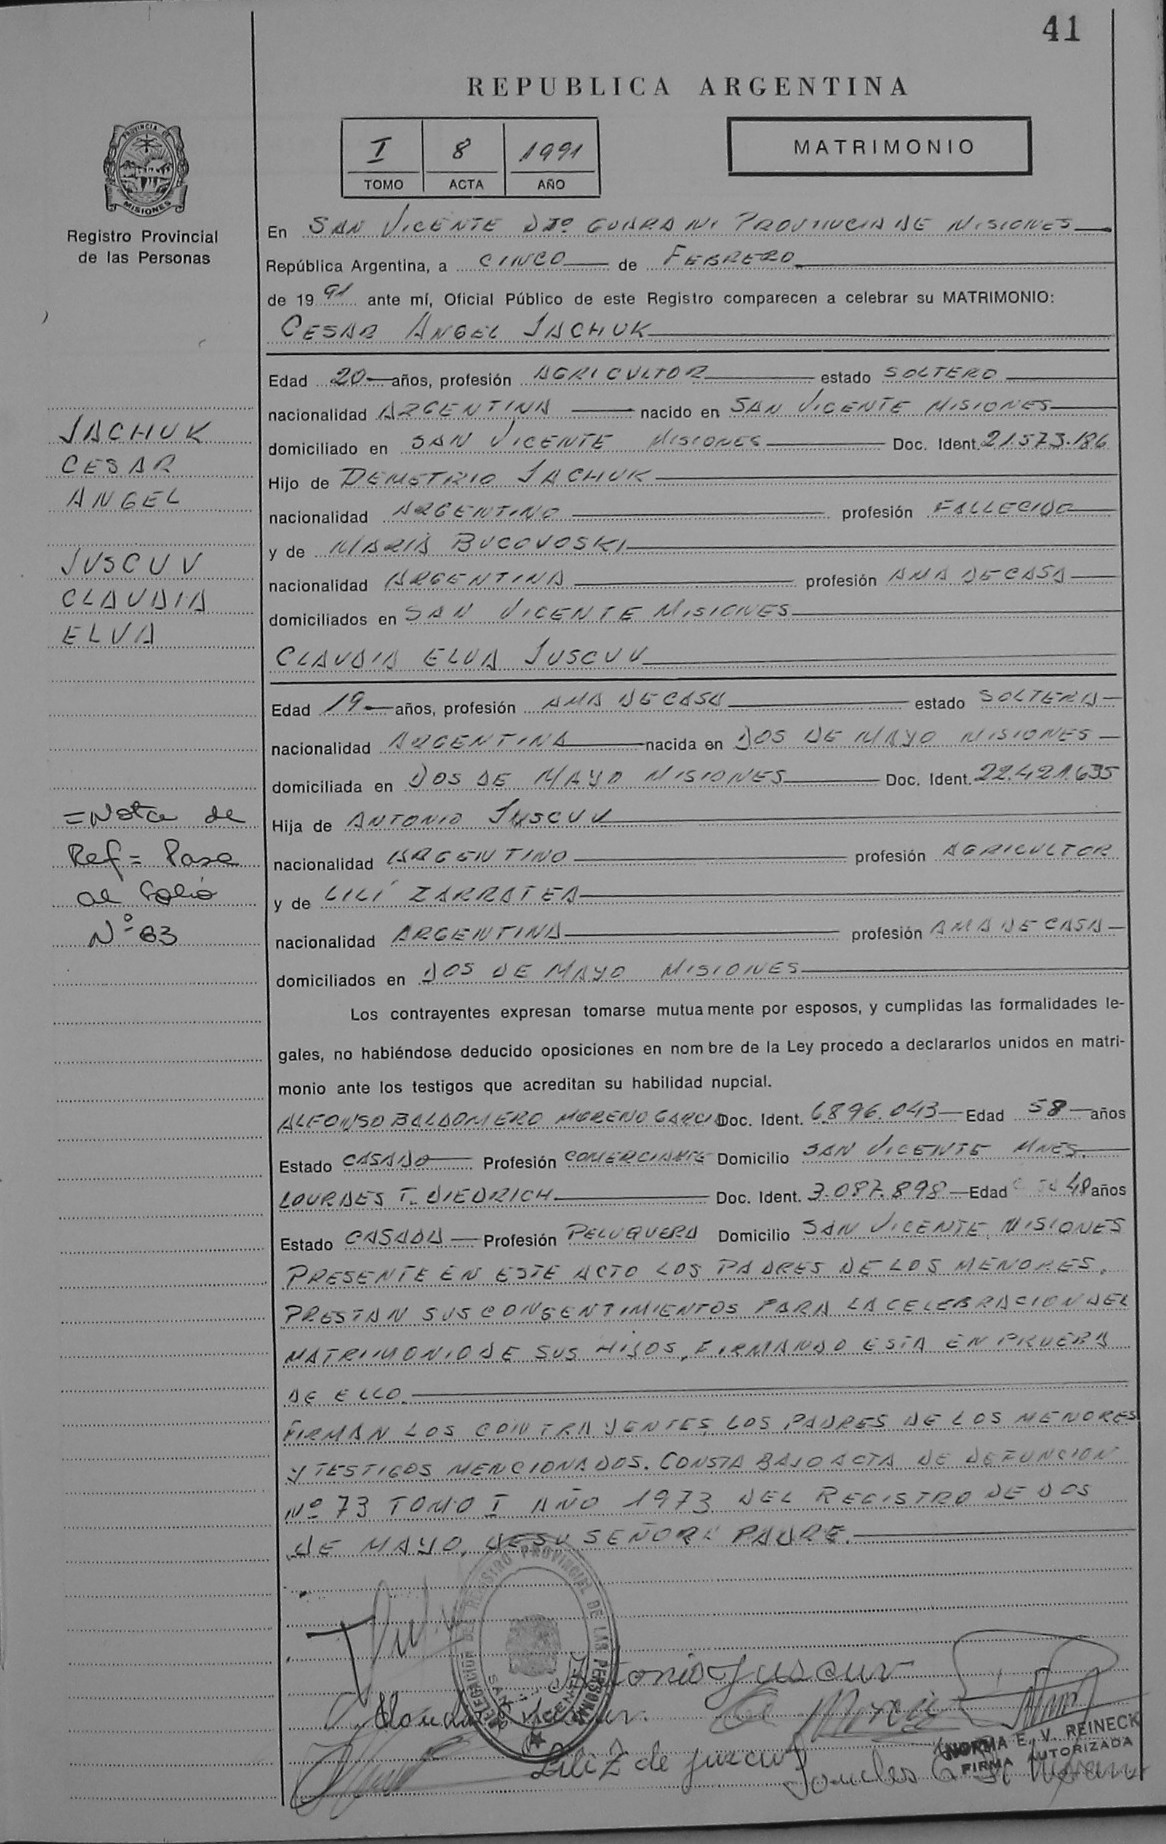 41
REPUBLICA ARGENTINA
PROVINCIA DE
MISIONES
Registro Provincial
de las Personas
I 8 1991
TOMO ACTA AÑO
MATRIMONIO
En SAN VICENTE DTO GUARANI PROVINCIA DE MISIONES
República Argentina, a CINCO de FEBRERO
de 1991 ante mí, Oficial Público de este Registro comparecen a celebrar su MATRIMONIO:
CESAR ANGEL JACHUK
Edad 20 años, profesión AGRICULTOR estado SOLTERO
nacionalidad ARGENTINA nacido en SAN VICENTE MISIONES
domiciliado en SAN VICENTE MISIONES Doc. Ident. 21.573.186
Hijo de DEMETRIO JACHUK
nacionalidad ARGENTINO profesión FALLECIDO
y de MARIA BUCOVOSKI
nacionalidad ARGENTINA profesión AMA DE CASA
domiciliados en SAN VICENTE MISIONES
CLAUDIA ELVA JUSCUV
Edad 19 años, profesión AMA DE CASA estado SOLTERA
nacionalidad ARGENTINA nacida en DOS DE MAYO MISIONES
domiciliada en DOS DE MAYO MISIONES Doc. Ident. 22.421.635
Hija de ANTONIO JUSCUV
nacionalidad ARGENTINO profesión AGRICULTOR
y de LILÍ ZARRATEA
nacionalidad ARGENTINA profesión AMA DE CASA
domiciliados en DOS DE MAYO MISIONES
Los contrayentes expresan tomarse mutuamente por esposos, y cumplidas las formalidades le-
gales, no habiéndose deducido oposiciones en nombre de la Ley procedo a declararlos unidos en matri-
monio ante los testigos que acreditan su habilidad nupcial.
ALFONSO BALDOMERO MORENO GARCIA Doc. Ident. 6.896.043 Edad 58 años
Estado CASADO Profesión COMERCIANTE Domicilio SAN VICENTE MNES.
LOURDES T. DIEDRICH Doc. Ident. 3.087.898 Edad 48 años
Estado CASADA Profesión PELUQUERA Domicilio SAN VICENTE MISIONES
PRESENTE EN ESTE ACTO LOS PADRES DE LOS MENORES,
PRESTAN SUS CONSENTIMIENTOS PARA LA CELEBRACION DEL
MATRIMONIO DE SUS HIJOS, FIRMANDO ESTA EN PRUEBA
DE ELLO.
FIRMAN LOS CONTRAYENTES, LOS PADRES DE LOS MENORES
Y TESTIGOS MENCIONADOS. CONSTA BAJO ACTA DE DEFUNCION
Nº 73 TOMO I AÑO 1973 DEL REGISTRO DE DOS
DE MAYO, DE SU SEÑOR PADRE.
JACHUK
CESAR
ANGEL
JUSCUV
CLAUDIA
ELVA
=Nota de
Ref= Pase
al folio
Nº 83
DELEGACION DE REGISTRO PROVINCIAL DE LAS PERSONAS
SAN VICENTE
Antonio Juscuv
Lili Z de juscuv
NORMA E. V. REINECK
FIRMA AUTORIZADA